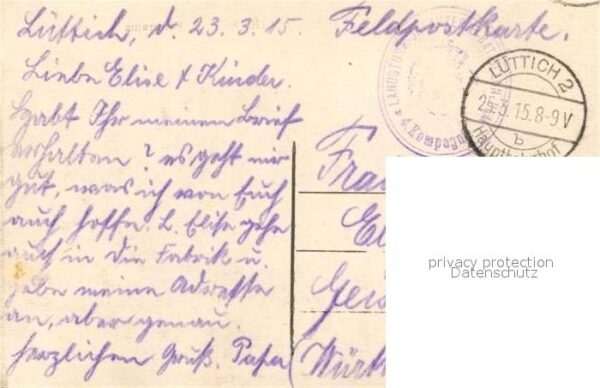 Lüttich, d. 23.3.15. Feldpostkarte.
Liebe Elise & Kinder.
Habt Ihr meinen Brief
erhalten? es geht mir
gut, was ich von Euch
auch hoffe. L. Elise gehe
auch in die Fabrik u.
gebe meine Adresse
an, aber genau.
herzlichen Gruß. Papa
LANDSTU
4. Kompag
LÜTTICH 2
25.3.15.8-9V
b
Hauptbahnhof
Frau
El
Geis
(Württ
privacy protection
Datenschutz